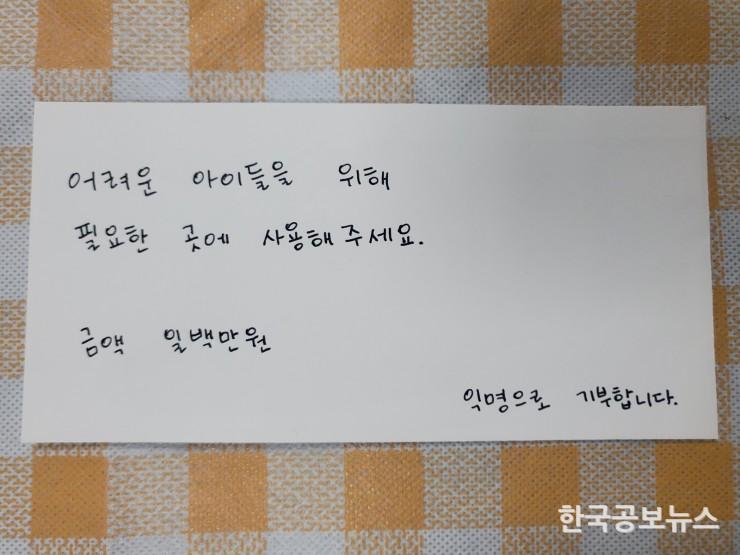 어려운 아이들을 위해
필요한 곳에 사용해주세요.
금액 일백만원
익명으로 기부합니다.
한국공보뉴스